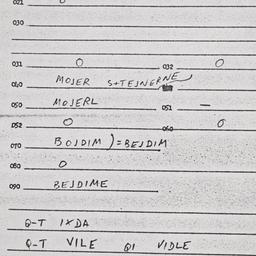 021 0
030
031 0 032 0
040 MOJER S+TEJNERNE
050 MOJERL 051 —
052 0 060 0
070 BOJDIM ) = BEJDIM
080 0
090 BEJDIME
Q-T IXDA
Q-T VILE QI VIDLE